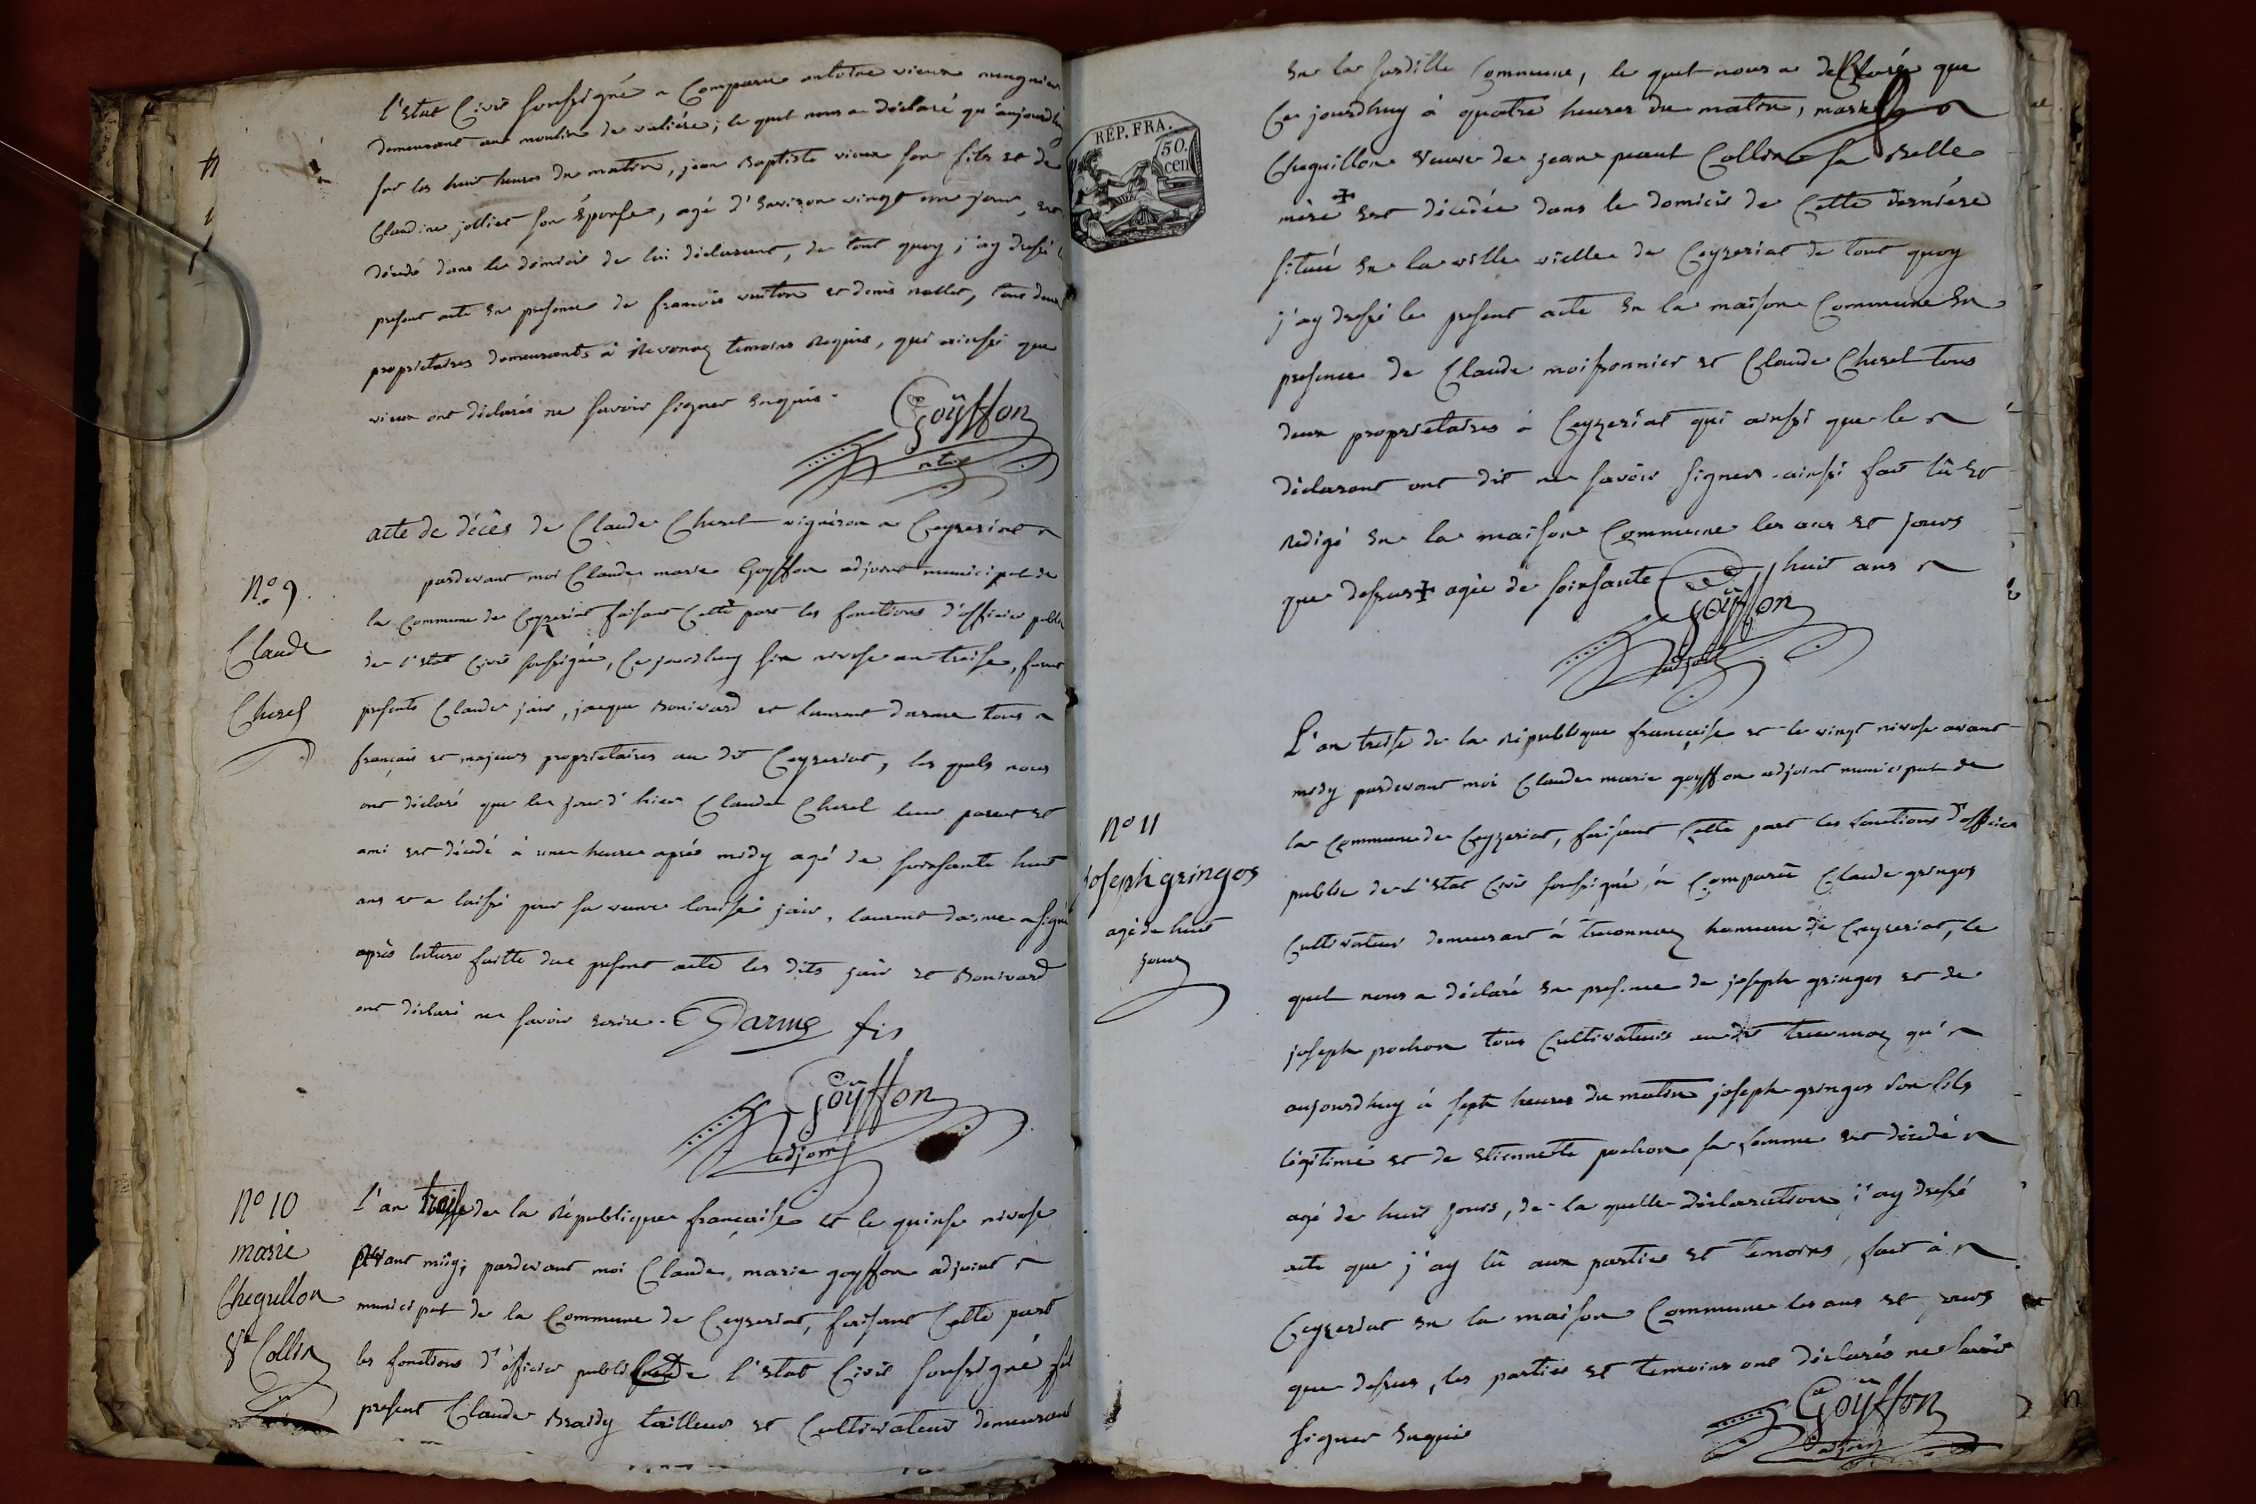 l'Etat Civil soussigné a Comparu antoine vieux meugnier
demeurant au moulin de valiére, le quel nous a déclaré qu'aujourdhuy
sur les huit heures du matin, jean Baptiste vieux son fils et de
Claudine jollier son Épouse, agé d'Environ vingt un jour, est
décédé dans le domicil de lui déclarant, de tout quoy j'ay dressé le
present acte En presence de francois vuiton et denis nallet, tous deux
proprietaires demeurants à Revonaz temoins Requis, qui ainssi que
vieux ont déclarés ne savoir signer Enquis.
Goÿffon
acte de décès de Claude Cherel vigneron a Ceyzeriat
N.o 9
Claude
Cherel
pardevant moi Claude marie Goyffon adjoint municipal de
la Commune de Ceyzeriat faisant Cette part les fonctions d'officier public
de l'Etat Civil soussigné, Ce jourdhuy six nivose an treise, furent
presents Claude jair, jacque Bonivard et laurent darme tous
français et majeurs proprietaires au dit Ceyzeriat, les quels nous
ont déclaré que le jour d'hier Claude Cherel leur parent et
ami est décédé à une heure après midy agé de soixante huit
ans et a laissé pour sa veuve louise jair, laurent darme a signé
après lecture faitte du present acte les dits jair et Bonivard
ont déclaré ne savoir Ecrire. Darme fis
Goÿffon
adjoint
N.o 10
marie
Chegullon
Ve Collin
L'an treise de la République française et le quinse nivose
avant midy, pardevant moi Claude marie goyffon adjoint
municipal de la Commune de Ceyzeriat, faisant Cette part
les fonctions d'officier public de l'Etat Civil soussigné fut
present Claude Braidy tailleur et Cultivateur demeurant
REP. FRA.
50.
cen
En la susdille Commune, le quel nous a déclaré que
Ce jourdhuy à quatre heures du matin, marie
Cheguillon veuve de jean Collin sa Belle
mère + Est décédée dans le domicil de Cette derniére
situé En la ville vielle de Ceyzeriat de tout quoy
j'ay dressé le present acte En la maison Commune En
presence de Claude moissonnier et Claude Cherel tous
deux proprietaires à Ceyzeriat qui ainssi que le
déclarant ont dit ne savoir signer. ainssi fait lû et
Redigé En la maison Commune les ans et jours
que dessus + agée de soixante huit ans
Goÿffon
adjoint
N.o 11
Joseph gringos
agé de huit
jours
L'an treise de la République française et le vingt nivose avant
midy pardevant moi Claude marie goyffon adjoint municipal de
la Commune de Ceyzeriat, faisant Cette part les fonctions d'officier
public de L'Etat Civil soussigné, a Comparû Claude gringos
Cultivateur demeurant à treconnaz hameau de Ceyzeriat, le
quel nous a déclaré En presence de joseph gringos et de
joseph pochon tous Cultivateurs au dit treconnaz qu'
aujourdhuy à sept heures du matin joseph gringos son fils
légitimé et de Etiennette pochon sa femme est décédé
agé de huit jours, de la quelle déclaration j'ay dressé
acte que j'ay lû aux parties et temoins, fait à
Ceyzeriat En la maison Commune les ans et jours
que dessus, les parties et temoins ont déclarés ne savoir
signer Enquis
Goÿffon
adjoint